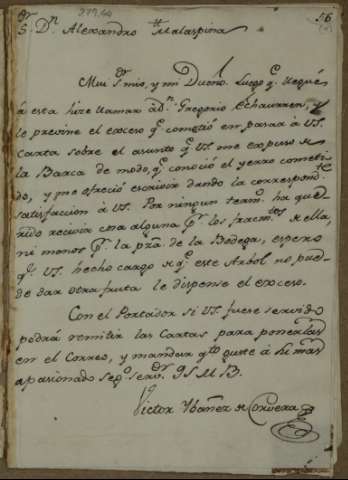 S.ᵒʳ D.ⁿ Alexandro Malaspina
Mui S.ʳ mio, y mi Dueño. Luego q.ᵉ llegué
á esta hize llamar á D.ⁿ Gregorio Echaurren, y
le previne el exceso q.ᵉ cometió en pasar á VS.
Carta sobre el asunto q.ᵉ VS me expuso de
la Barca de modo, q.ᵉ conoció el yerro cometi
do, y me ofreció escrivir dando la correspond.ᵗᵉ
satisfaccion á VS. Por ningun term.º ha que
rido recivir cosa alguna p.ʳ los de ella,
ni menos p.ʳ la de la Bodega, espero
q.ᵉ VS. hecho cargo de q.ᵉ este Arbol no pue
de dar otra fruta le dispense el exceso.
Con el Portador si VS. fuese servido
podrá remitir las Cartas para ponerlas
en el Correo, y mandar q.ᵗᵒ guste á su mas
apasionado seg.º serv.ᵒʳ Q S M B.
Victor Ybañez de Corvera